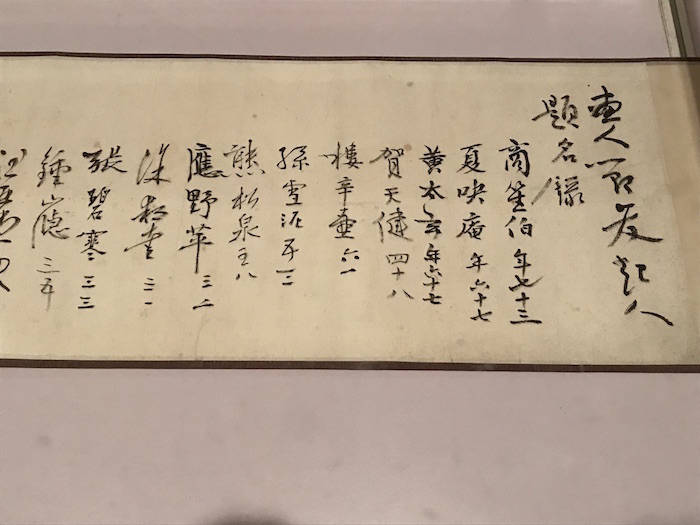 畫人節發起人
題名錄
商笙伯年七十三
夏映庵年六十七
黃太玄年六十七
賀天健四十八
樓辛壺六一
孫雪泥五二
熊松泉五八
應野苹三二
張碧寒三三
三五